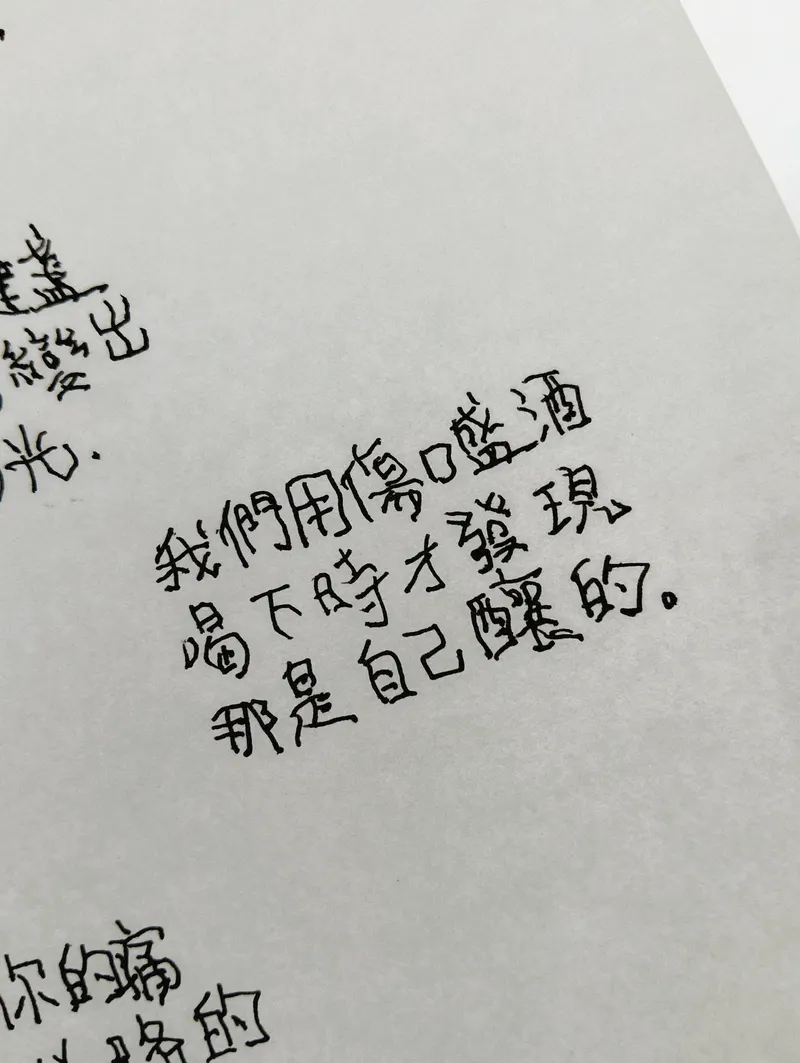 盞
變出
光.
我們用傷口盛酒
喝下時才發現
那是自己釀的。
你的痛
路的